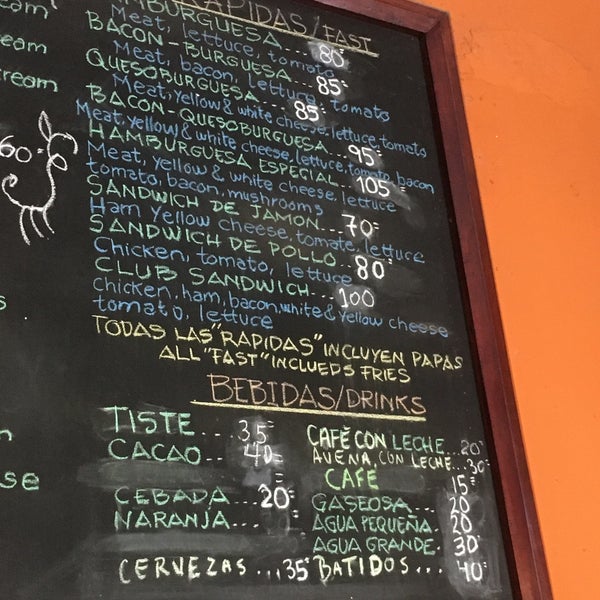 eam
RAPIDAS/FAST
HAMBURGUESA....80=
Meat, lettuce, tomato
eam
BACON-BURGUESA...85=
Meat, bacon, lettuce, tomato
cream
QUESOBURGUESA...85=
Meat, yellow & white cheese, lettuce, tomato
BACON-QUESOBURGUESA...95=
Meat, yellow & white cheese, lettuce, tomato, bacon
60=
HAMBURGUESA ESPECIAL...105=
Meat, yellow & white cheese, lettuce
tomato, bacon, mushrooms
SANDWICH DE JAMON...70=
Ham Yellow cheese, tomate, lettuce
SANDWICH DE POLLO..80=
Chicken, tomato, lettuce
CLUB SANDWICH...100
Chicken, ham, bacon, white & Yellow cheese
tomato, lettuce
s
TODAS LAS "RAPIDAS" INCLUYEN PAPAS
ALL "FAST" INCLUEDS FRIES
BEBIDAS/DRINKS
TISTE...35=
CACAO..40=
n
se
CEBADA...20=
NARANJA...=
CERVEZAS...35=
CAFÉ CON LECHE...20=
AVENA, CON LECHE...30=
CAFÉ 15=
GASEOSA...20
AGUA PEQUEÑA.20=
AGUA GRANDE.30=
BATIDOS...40=